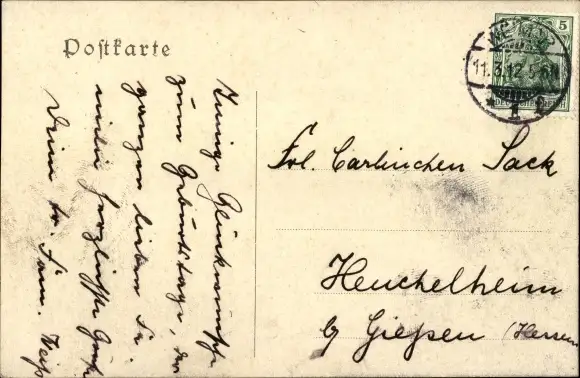 Postkarte
5
WETZLAR
11.3.12.5-6N
* 1 *
Innige Glückwünsche
zum Geburtstage, der
ganzen lieben
viele herzliche Grüße
Deine tr. Fam.
Frl. Carlinchen Sack
Heuchelheim
b/ Gießen (Hessen